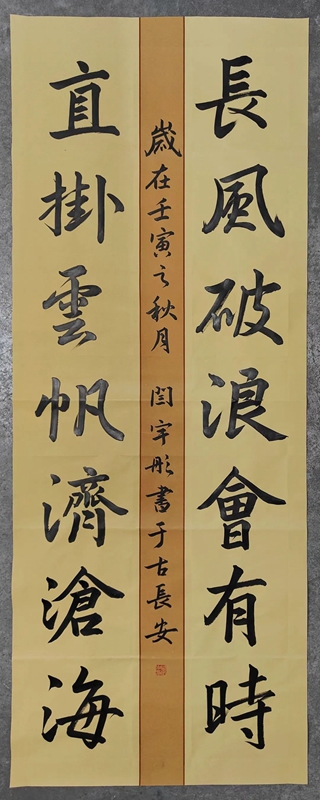 長風破浪會有時
直掛雲帆濟滄海
歲在壬寅之秋月 閆宇彤書于古長安